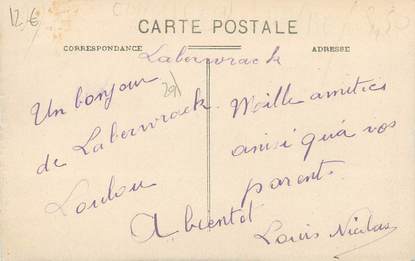 12 €
CARTE POSTALE
CORRESPONDANCE
ADRESSE
Laberwrack
Un bonjour
de Laberwrack.
Loulou
A bientot
29
Mille amities
ainsi qu'a vos
parents.
Louis Nicolas